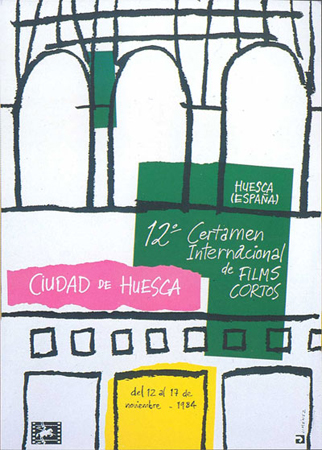 HUESCA
(ESPAÑA)
12º Certamen
Internacional
de FILMS
CORTOS
CIUDAD DE HUESCA
del 12 al 17 de
noviembre - 1984